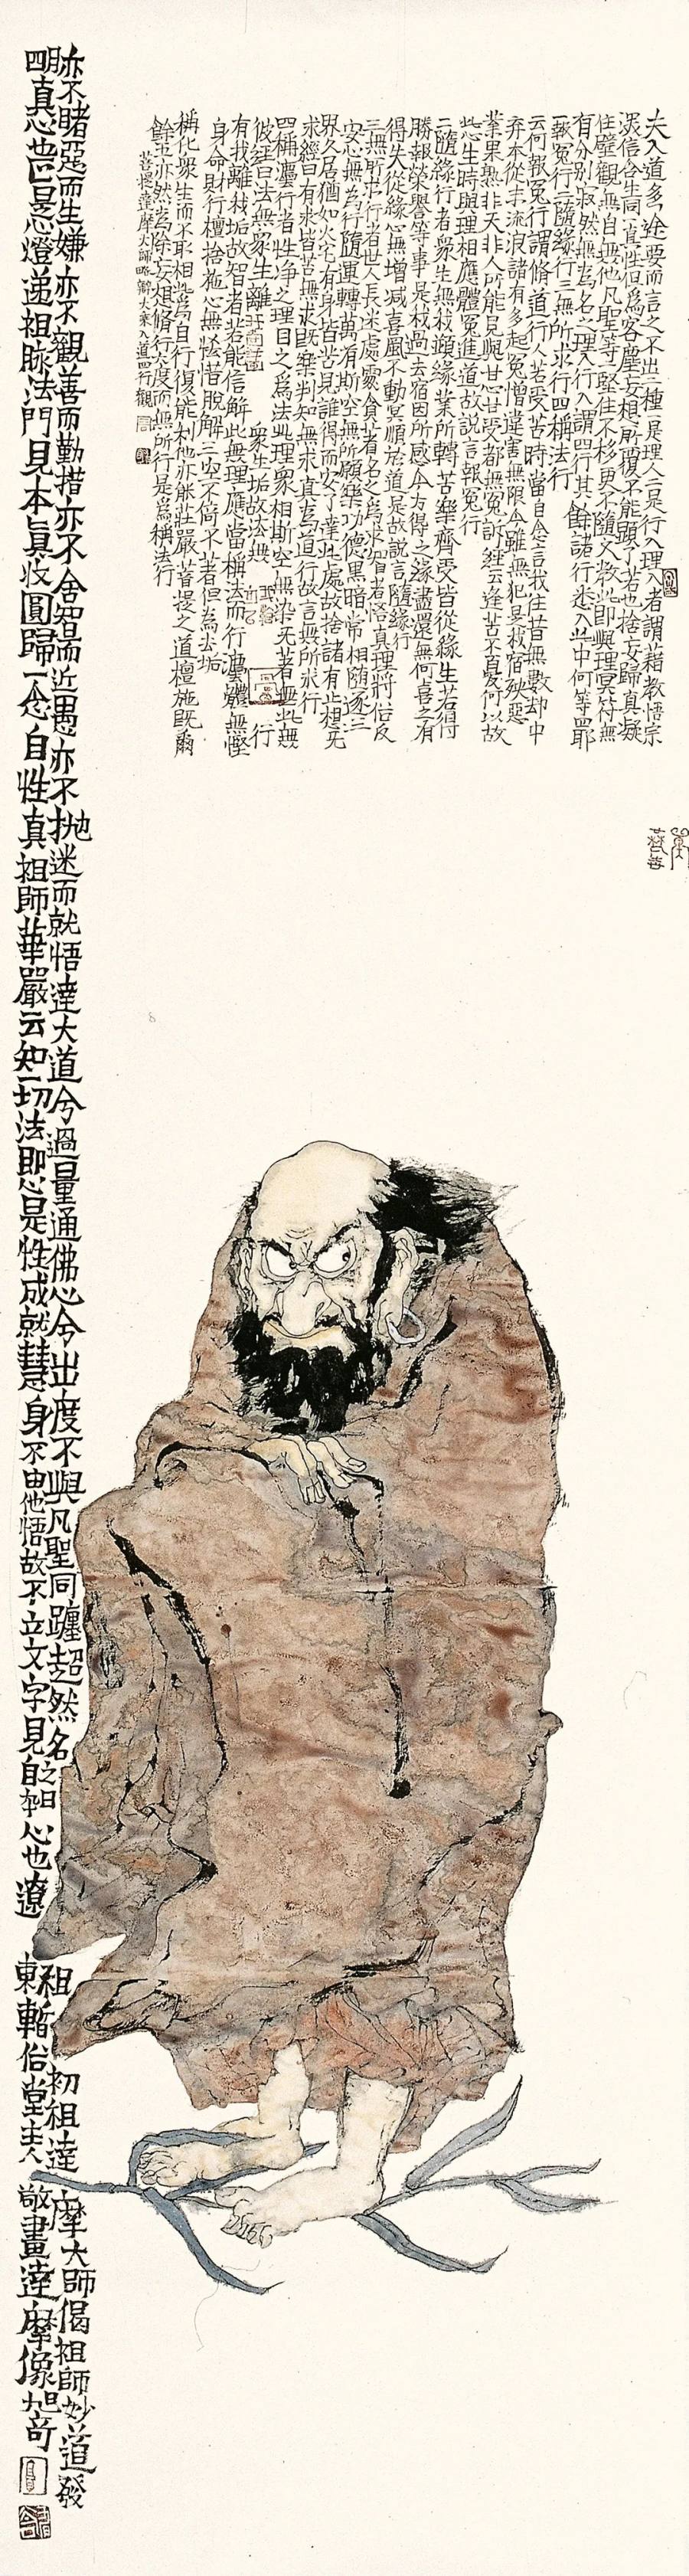 夫入道多途要而言之不出二種一是理入二是行入理入者謂藉教悟宗
深信含生同一真性但為客塵妄想所覆不能顯了若也捨妄歸真凝
住壁觀無自無他凡聖等一堅住不移更不隨文教此即與理冥符無
有分別寂然無為名之理入行入謂四行其餘諸行悉入此中何等四耶
一報冤行二隨緣行三無所求行四稱法行
云何報冤行謂脩道行人若受苦時當自念言我往昔無數劫中
弃本從末流浪諸有多起冤憎違害無限今雖無犯是我宿殃惡
業果熟非天非人所能見與甘心甘受都無冤訴經云逢苦不憂何以故
此心生時與理相應體冤進道故說言報冤行
二隨緣行者衆生無我竝緣業所轉苦樂齊受皆從緣生若得
勝報榮譽等事是我過去宿因所感今方得之緣盡還無何喜之有
得失從緣心無增減喜風不動冥順於道是故說言隨緣行
三無所求行者世人長迷處處貪著名之為求智者悟真理將俗反
安心無為形隨運轉萬有斯空無所願樂功德黑暗常相隨逐三
界久居猶如火宅有身皆苦誰得而安了達此處故捨諸有止想无
求經曰有求皆苦無求既樂判知無求真為道行故言無所求行
四稱法行者性淨之理目之為法此理衆相斯空無染无著無此無
彼經曰法無衆生離衆生垢故法無
有我離我垢故智者若能信解此無理應當稱法而行法體無慳
身命財行檀捨施心無恡惜脫解三空不倚不著但為去垢
稱化衆生而不取相此為自行復能利他亦能莊嚴菩提之道檀施既爾
餘五亦然為除妄想脩行六度而無所行是為稱法行
菩提達摩大師略辯大乘入道四行觀
亦不睹惡而生嫌亦不觀善而勤措亦不舍知而近愚亦不抛迷而就悟達大道兮過量通佛心兮出度不與凡聖同躔超然名之曰祖 初祖達摩大師偈祖師妙道發
明真心也四是心燈遞祖脉法門見本真收圓歸一念自性真祖師華嚴云知一切法即心是性成就慧身不由他悟故不立文字見自本心也遼東暫俗堂主人 敬畫達摩像旭奇